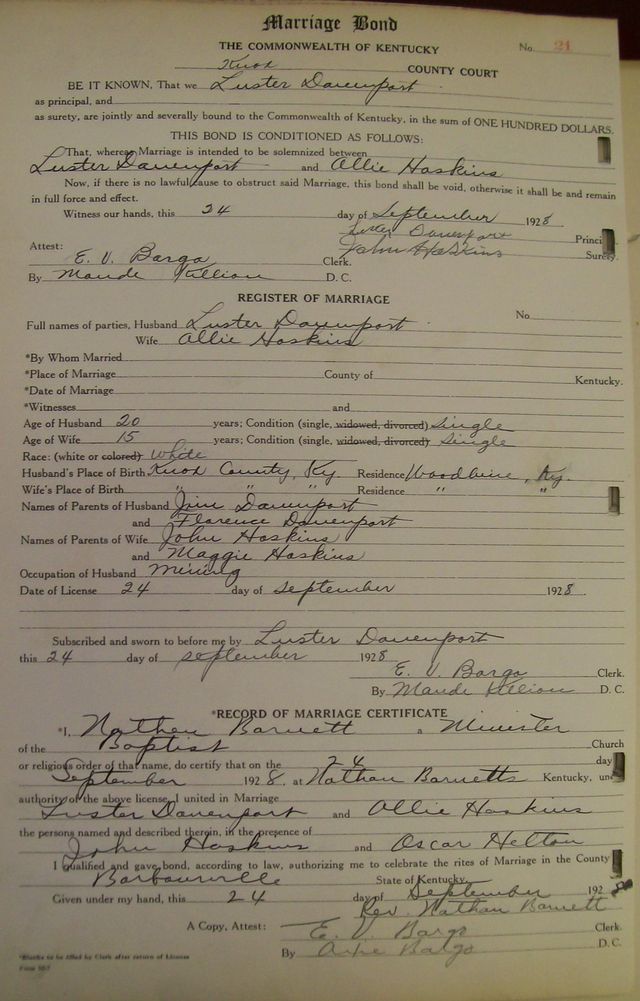 Marriage Bond
THE COMMONWEALTH OF KENTUCKY No. 21
Knox COUNTY COURT
BE IT KNOWN, That we Luster Davenport
as principal, and
as surety, are jointly and severally bound to the Commonwealth of Kentucky, in the sum of ONE HUNDRED DOLLARS.
THIS BOND IS CONDITIONED AS FOLLOWS:
That, whereas Marriage is intended to be solemnized between
Luster Davenport and Allie Hoskins
Now, if there is no lawful cause to obstruct said Marriage, this bond shall be void, otherwise it shall be and remain
in full force and effect.
Witness our hands, this 24 day of September 1928
Luster Davenport Princi
Attest: John Hoskins Surety.
E. V. Bargo Clerk.
By Maude Killion D. C.
REGISTER OF MARRIAGE
Full names of parties, Husband Luster Davenport No.
Wife Allie Hoskins
*By Whom Married
*Place of Marriage County of Kentucky.
*Date of Marriage
*Witnesses and
Age of Husband 20 years; Condition (single, widowed, divorced) Single
Age of Wife 15 years; Condition (single, widowed, divorced) Single
Race: (white or colored) White
Husband's Place of Birth Knox County, Ky. Residence Woodbine, Ky.
Wife's Place of Birth " " " Residence " "
Names of Parents of Husband Jim Davenport
and Florence Davenport
Names of Parents of Wife John Hoskins
and Maggie Hoskins
Occupation of Husband Mining
Date of License 24 day of September 1928.
Subscribed and sworn to before me by Luster Davenport
this 24 day of September 1928
E. V. Bargo Clerk.
By Maude Killion D. C.
*RECORD OF MARRIAGE CERTIFICATE
*I, Nathan Barnett a Minister
of the Baptist Church
or religious order of that name, do certify that on the 24 day
September 1928, at Nathan Barnetts Kentucky, und
authority of the above license, I united in Marriage
Luster Davenport and Allie Hoskins
the persons named and described therein, in the presence of
John Hoskins and Oscar Helton
I qualified and gave bond, according to law, authorizing me to celebrate the rites of Marriage in the County
Barbourville State of Kentucky.
Given under my hand, this 24 day of September 1928
Rev. Nathan Barnett
A Copy, Attest: E. V. Bargo Clerk.
By Bargo D. C.
*Blanks to be filled by Clerk after return of License